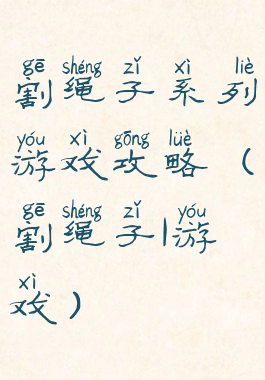 gē shéng zǐ xì liè
割绳子系列
yóu xì gōng lüè
游戏攻略（
gē shéng zǐ yóu
割绳子|游
xì
戏）